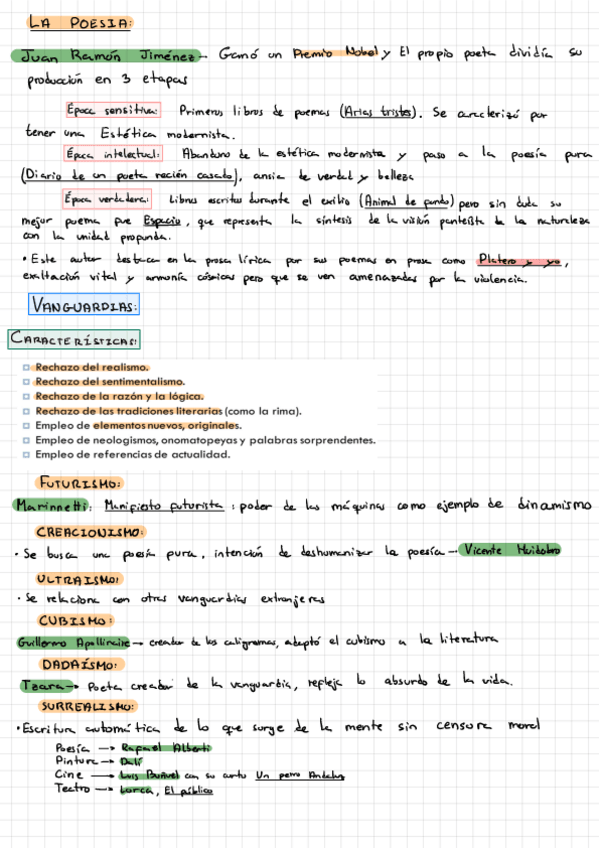 LA POESIA:
Juan Ramón Jiménez → Ganó un Premio Nobel y El propio poeta dividía su
producción en 3 etapas
Época sensitiva: Primeros libros de poemas (Arias tristes). Se caracterizó por
tener una Estética modernista.
Época intelectual: Abandono de la estética modernista y paso a la poesía pura
(Diario de un poeta recién casado), ansia de verdad y belleza
Época verdadera: Libros escritos durante el exilio (Animal de fondo) pero sin duda su
mejor poema fue Espacio, que representa la síntesis de la visión panteísta de la naturaleza
con la unidad profunda.
• Este autor destaca en la prosa lírica por sus poemas en prosa como Platero y yo,
exaltación vital y armonía cósmicas pero que se ven amenazadas por la violencia.
VANGUARDIAS:
CARACTERÍSTICAS:
Rechazo del realismo.
Rechazo del sentimentalismo.
Rechazo de la razón y la lógica.
Rechazo de las tradiciones literarias (como la rima).
Empleo de elementos nuevos, originales.
Empleo de neologismos, onomatopeyas y palabras sorprendentes.
Empleo de referencias de actualidad.
FUTURISMO:
Marinnetti: Manifiesto futurista: poder de las máquinas como ejemplo de dinamismo
CREACIONISMO:
• Se busca una poesía pura, intención de deshumanizar la poesía → Vicente Huidobro
ULTRAISMO:
• Se relaciona con otras vanguardias extranjeras
CUBISMO:
Guillermo Apollinaire → creador de los caligramas, adaptó el cubismo a la literatura
DADAÍSMO:
Tzara → Poeta creador de la vanguardia, refleja lo absurdo de la vida.
SURREALISMO:
• Escritura automática de lo que surge de la mente sin censura moral
Poesía → Rafael Alberti
Pintura → Dalí
Cine → Luis Buñuel con su corto Un perro Andaluz
Teatro → Lorca, El público